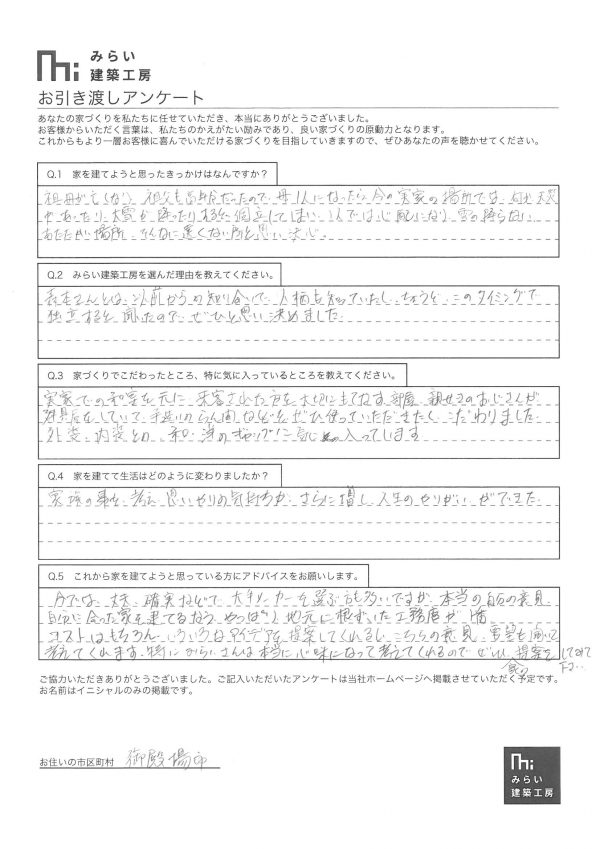 みらい
建築工房
お引き渡しアンケート
あなたの家づくりを私たちに任せていただき、本当にありがとうございました。
お客様からいただく言葉は、私たちのかえがたい励みであり、良い家づくりの原動力となります。
これからもより一層お客様に喜んでいただける家づくりを目指していきますので、ぜひあなたの声を聴かせてください。
Q.1 家を建てようと思ったきっかけはなんですか？
祖母が亡くなり、祖父も高齢だったので、母1人になったら今の実家の場所では、何か災
があったり、大雪が降ったりすると孤立してしまい、1人では心配になり、雪の降らない
あたたかい場所、そんなに遠くない所と思い決心。
Q.2 みらい建築工房を選んだ理由を教えてください。
さんとは、以前からの知り合いで、人柄も知っていたし、ちょうど、このタイミングで
独立すると聞いたので、ぜひと思い決めました。
Q.3 家づくりでこだわったところ、特に気に入っているところを教えてください。
実家での和室を元に、来客された方を大切にもてなす部屋、親せきのおじさんが
建具屋をしていて、手造りのらん間などをぜひ使っていただきたく、こだわりました。
外装、内装との、和・洋のギャップに気に入っています
Q.4 家を建てて生活はどのように変わりましたか？
家族の事を、考え、思いやりの気持ちが、さらに増し、人生のやりがいができた。
Q.5 これから家を建てようと思っている方にアドバイスをお願いします。
今では、確実などで大手メーカーを選ぶ方も多いですが、本当の自分の意見、
自分に合った家を建てるなら、やっぱり地元に根ずいた工務店が1番
コストはもちろん、いろいろなアイデアを提案してくれるし、こちらの意見、要望も聞いて
考えてくれます。特に さんは本当に心味になって考えてくれるのでぜひ、提案をしてみて
下さい
ご協力いただきありがとうございました。ご記入いただいたアンケートは当社ホームページへ掲載させていただく予定です。
お名前はイニシャルのみの掲載です。
お住いの市区町村 御殿場市
みらい
建築工房